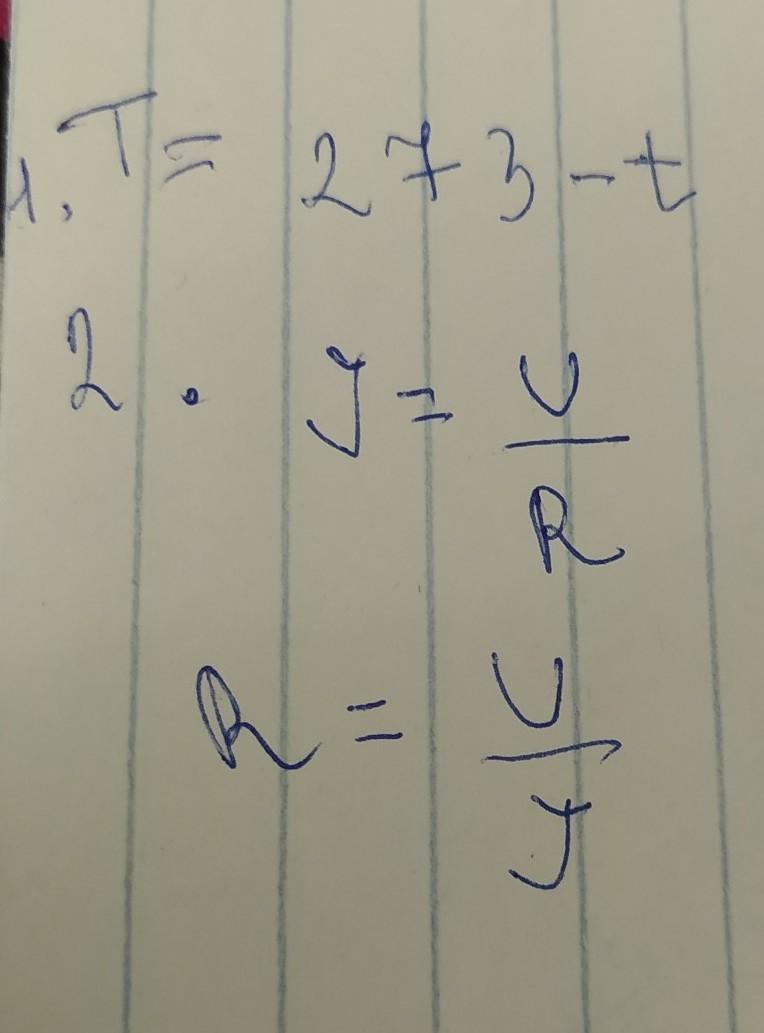 1. T = 273 - t
2. J = U/R
R = U/J